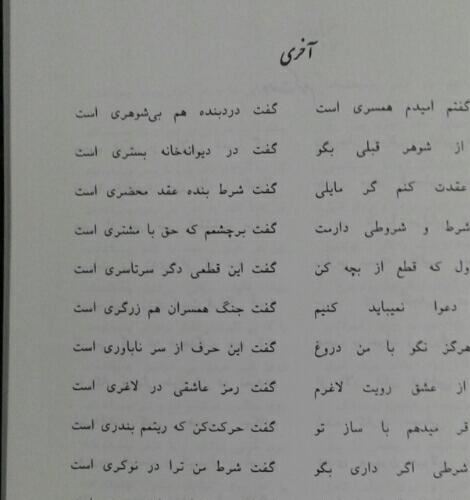 آخری
گفتم امیدم همسری است گفت دردبنده هم بی‌شوهری است
از شوهر قبلی بگو گفت در دیوانه‌خانه بستری است
عقدت کنم گر مایلی گفت شرط بنده عقد محضری است
شرط و شروطی دارمت گفت برچشمم که حق با مشتری است
ول که قطع از بچه کن گفت این قطعی دگر سرتاسری است
دعوا نمیباید کنیم گفت جنگ همسران هم زرگری است
هرگز نگو با من دروغ گفت این حرف از سر ناباوری است
از عشق رویت لاغرم گفت رمز عاشقی در لاغری است
قر میدهم با ساز تو گفت حرکت‌کن که ریتمم بندری است
شرطی اگر داری بگو گفت شرط من ترا در نوکری است